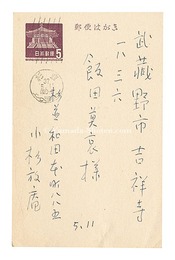 郵便はがき
日本郵便
5
武蔵野市吉祥寺
一八三六
飯田莫哀様
杉並
和田本町八八五
小杉放庵
5.11